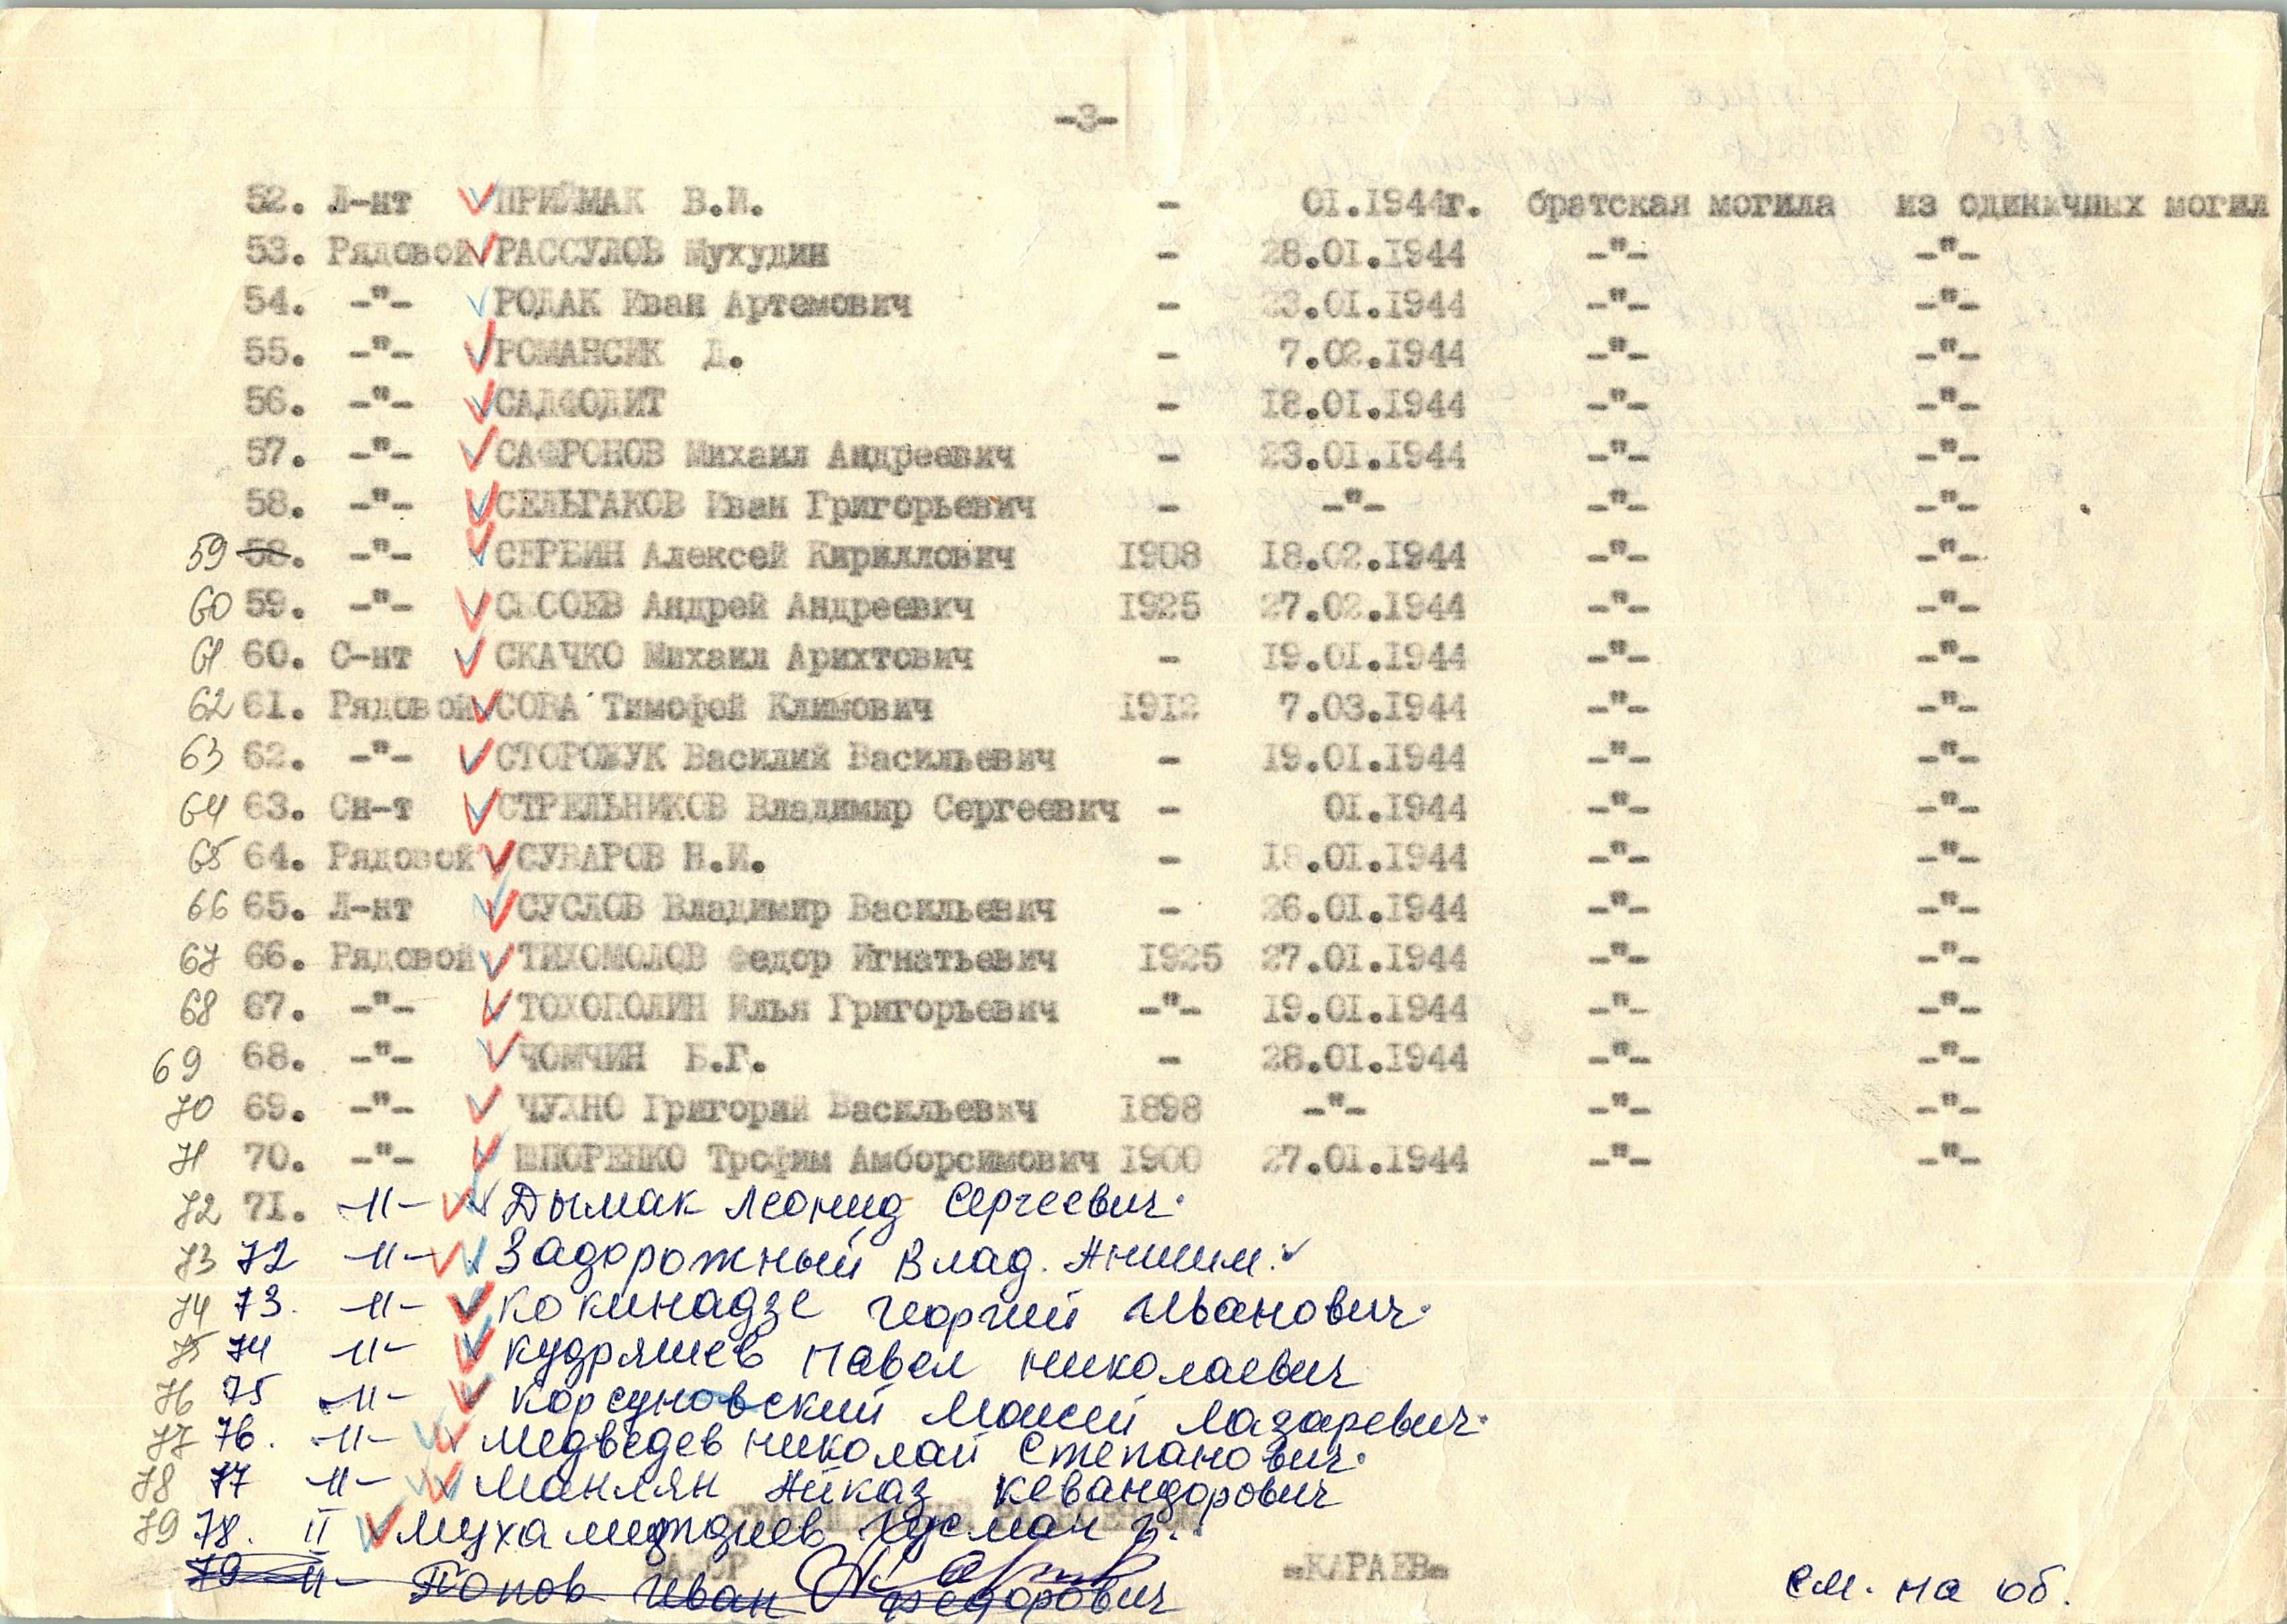 -3-
52. Л-нт ПРИЙМАК В.И. - 01.1944г. братская могила из одиначных могил
53. Рядовой РАССУЛОВ Мухудин - 28.01.1944 -"- -"-
54. -"- РОДАК Иван Артемович - 23.01.1944 -"- -"-
55. -"- РОМАНСИК Д. - 7.02.1944 -"- -"-
56. -"- САДФОДИТ - 18.01.1944 -"- -"-
57. -"- САФРОНОВ Михаил Андреевич - 23.01.1944 -"- -"-
58. -"- СЕЛЬГАКОВ Иван Григорьевич - -"- -"- -"-
59 58. -"- СЕРБИН Алексей Кириллович 1908 18.02.1944 -"- -"-
60 59. -"- Андрей Андреевич 1925 27.02.1944 -"- -"-
61 60. С-нт СКАЧКО Михаил Арихтович - 19.01.1944 -"- -"-
62 61. Рядовой СОВА Тимофей Климович 1912 7.03.1944 -"- -"-
63 62. -"- СТОРОЖУК Василий Васильевич - 19.01.1944 -"- -"-
64 63. Сн-т СТРЕЛЬНИКОВ Владимир Сергеевич - 01.1944 -"- -"-
65 64. Рядовой СУВАРОВ Н.И. - 18.01.1944 -"- -"-
66 65. Л-нт СУСЛОВ Владимир Васильевич - 26.01.1944 -"- -"-
67 66. Рядовой ТИХОМОЛОВ Федор Игнатьевич 1925 27.01.1944 -"- -"-
68 67. -"- ТОХОПОЛИН Илья Григорьевич -"- 19.01.1944 -"- -"-
69 68. -"- ЧОМЧИН Б.Г. - 28.01.1944 -"- -"-
70 69. -"- ЧУХНО Григорий Васильевич 1898 -"- -"- -"-
71 70. -"- ШПОРЕНКО Трофим Амборсимович 1900 27.01.1944 -"- -"-
72 71. -"- Дымак Леонид Сергеевич.
73 72 -"- Задорожный Влад. Аншим.
74 73. -"- Кокинадзе Георгий Иванович.
75 74 -"- Кудряшев Павел Николаевич
76 75 -"- Корсуновский Моисей Лазаревич.
77 76. -"- Медведев Николай Степанович.
78 77 -"- Манлян Айказ Кевандорович
79 78. II Гусман Г.
79 II- Попов Иван Федорович
-КАРАЕВ-
см. на об.